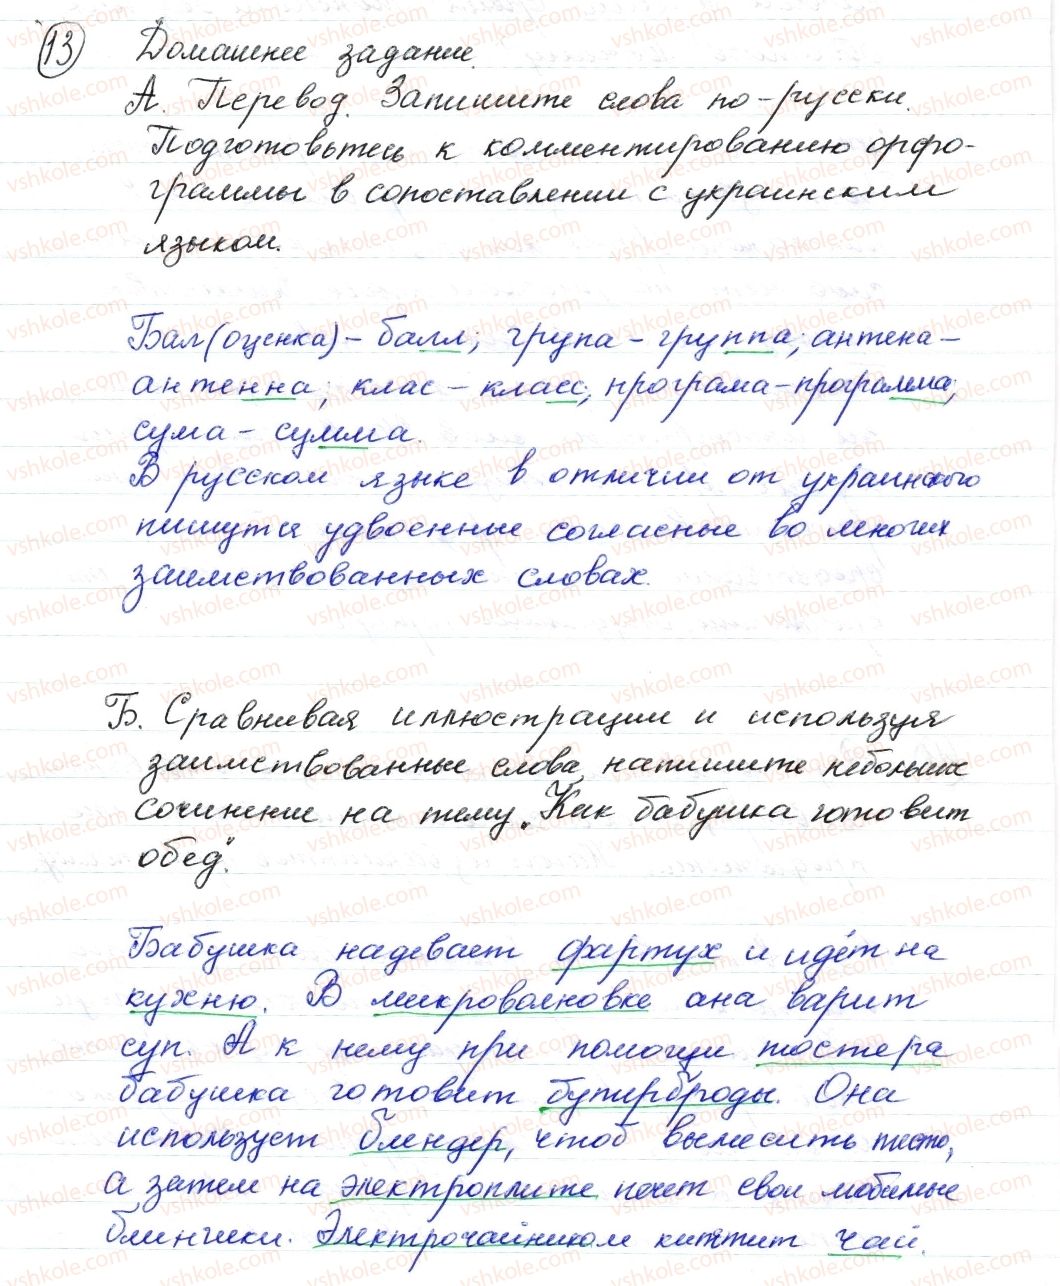 13 Домашнее задание.
А. Перевод. Запишите слова по-русски.
Подготовьтесь к комментированию орфо-
граммы в сопоставлении с украинским
языком.
Бал (оценка) - балл; група - группа; антена -
антенна; клас - класс; програма - программа;
сума - сумма.
В русском языке в отличии от украинского
пишутся удвоенные согласные во многих
заимствованных словах.
Б. Сравнивая иллюстрации и используя
заимствованные слова, напишите небольшое
сочинение на тему „Как бабушка готовит
обед".
Бабушка надевает фартух и идёт на
кухню. В микроволновке она варит
суп. А к нему при помощи тостера
бабушка готовит бутерброды. Она
использует блендер, чтоб вымесить тесто,
а затем на электроплите печет свои любимые
блинчики. Электрочайником кипятит чай.